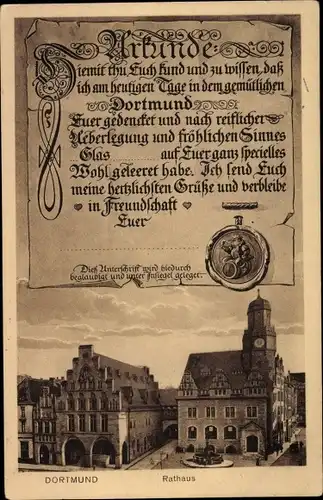 Urkunde:
Hiemit thu Euch kund und zu wissen, daß
ich am heutigen Tage in dem gemütlichen
Dortmund
Euer gedencket und nach reiflicher
Ueberlegung und fröhlichen Sinnes
Glas .......... auf Euer ganz specielles
Wohl geleeret habe. Ich send Euch
meine hertzlichsten Grüße und verbleibe
in Freundschaft
Euer
Dies Unterschrift wird hiedurch
beglaubigt und unter Insiegel geleget.
DORTMUND
Rathaus